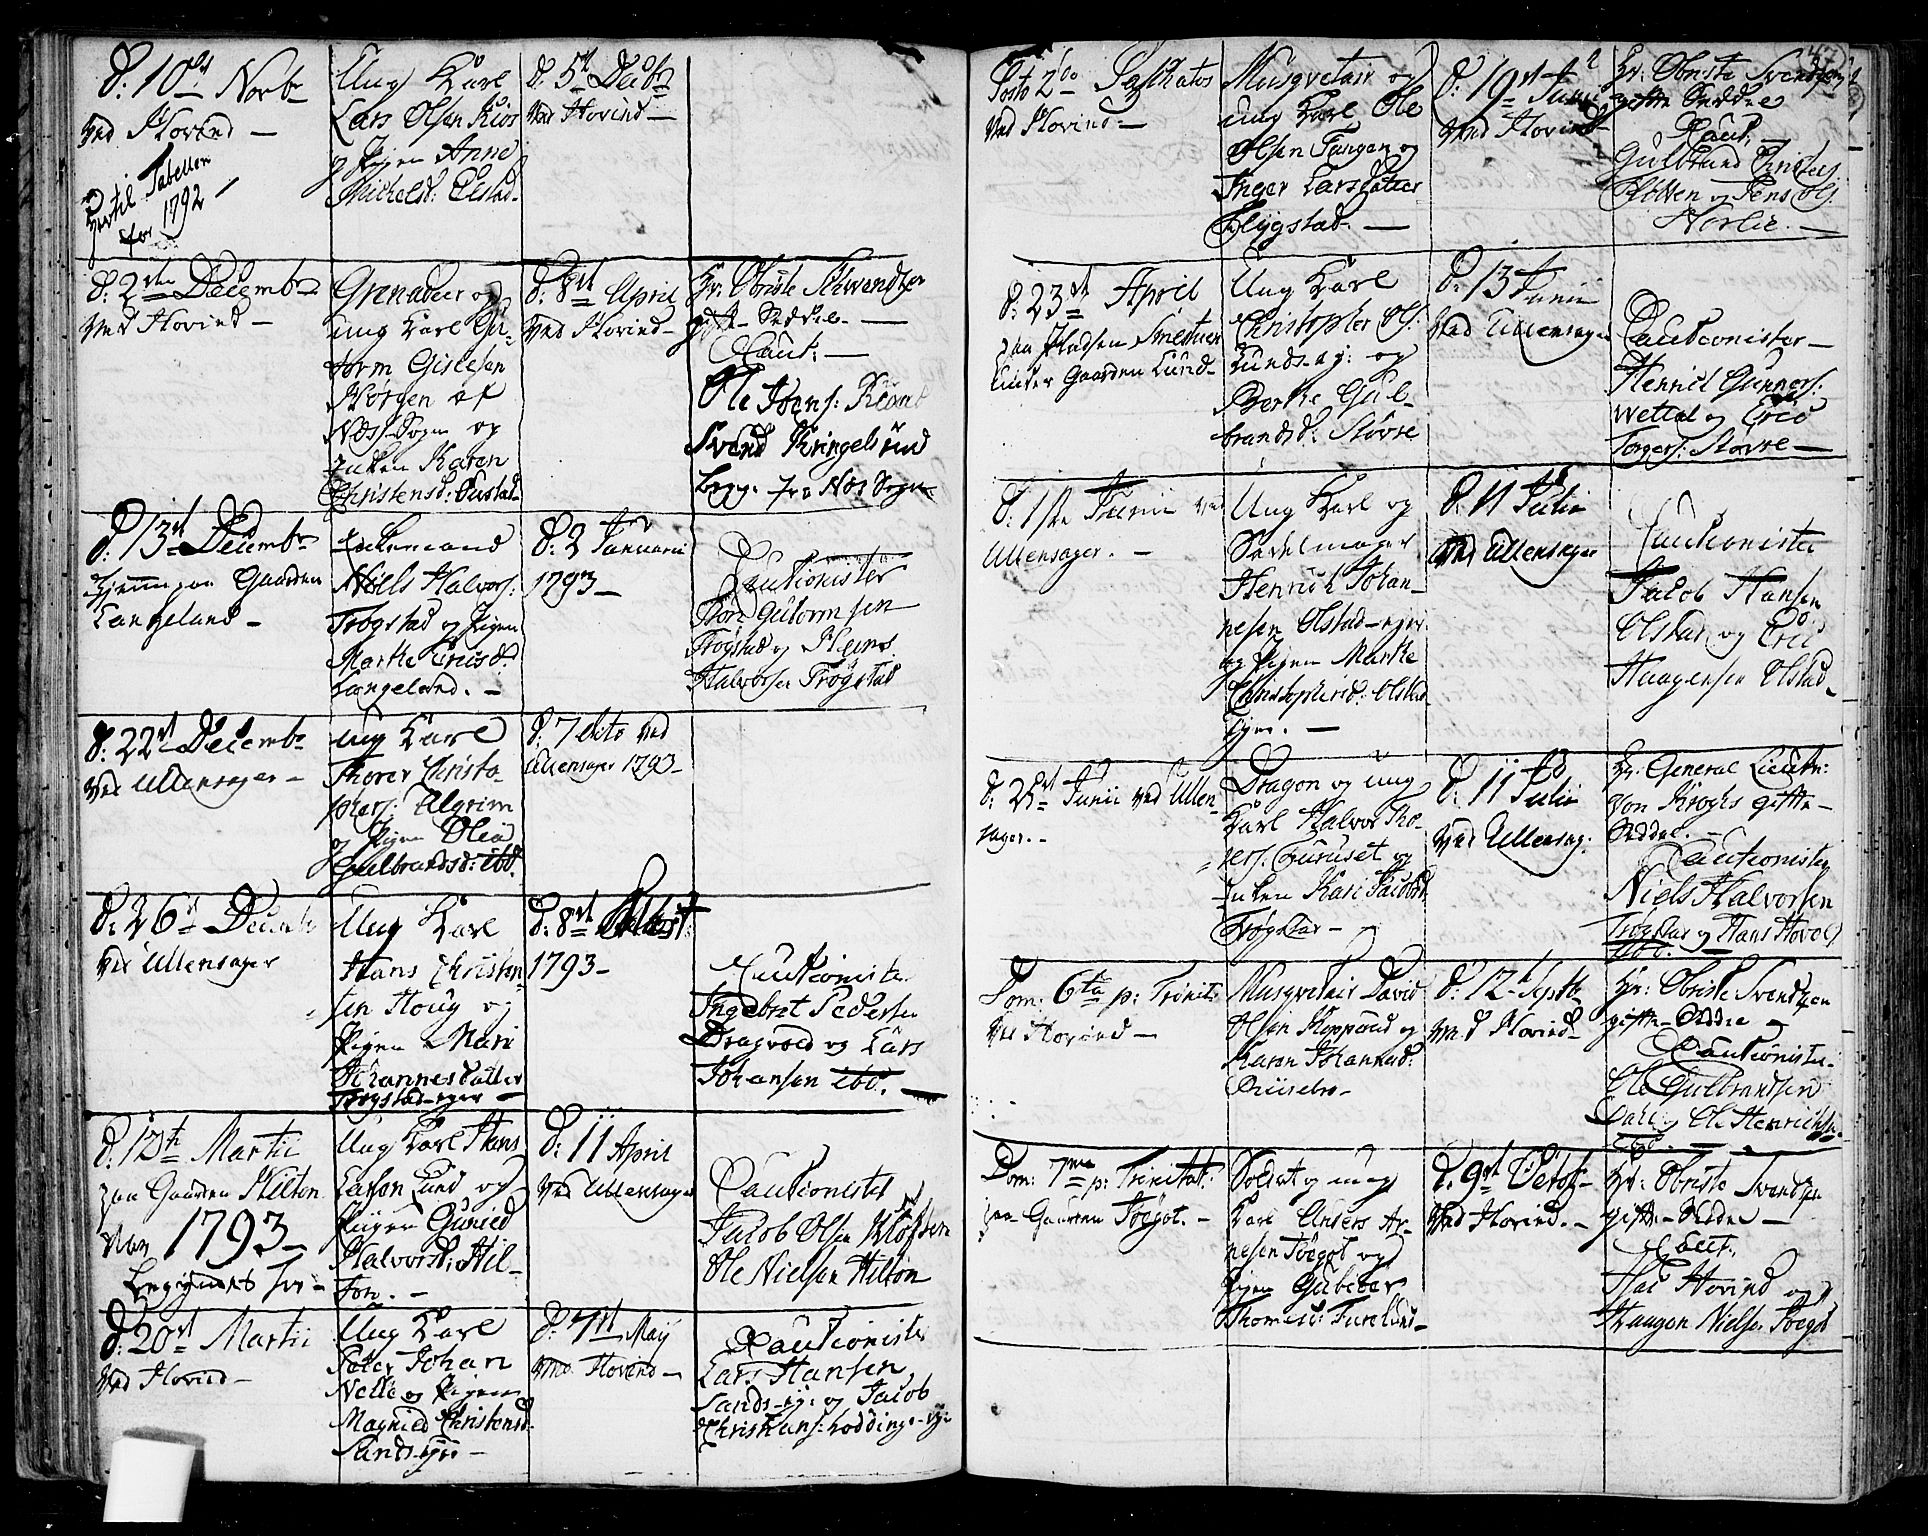 d: 10de Novb
Ved Hovind —
Hertil Tabellen
for 1792
Ung Karl
Lars Olsen Kios
og Pigen Anne
Michelsd: Elstad.
d: 5t Decbr
Ved Hovind —
d: 2den Decembr
Ved Hovind —
Grenadeer og
ung Karl Gu-
torm Gislesen
Hørgen af
Næss-Sogn og
Enken Karen
Christensd:
d: 8st April
Ved Hovind —
Hr: Obriste Schwendtzen
gifte-Seddel —
Caut: —
Ole Joens:
Svend Kringelrud
begge fra Næs Sogn
d: 13st Decembr
hjemme paa Gaarden
Langeland —
Enkemand
Niels Halvors:
Trøgstad og Pigen
Marthe Ericsd:
Langeland. —
d: 2 Januarii
1793 —
Cautionister
Tore Gutormsen
Trøgstad og
Halvorsen Trøgstad
d: 22st Decembr
Ved Ullensager —
ung Karl
Thorer Christo-
phers: Algrim
og Pigen Oleä
Gulbrandsd: ibd.
d: 7 dito ved
Ullensager 1793 —
d: 26st Decembr
Ved Ullensager
Ung Karl
Hans Christen-
sen Houg og
Pigen Mari
Johannesdatter
Trøgstad-eyer —
d: 8st
1793 —
Cautionister
Ingebret Pedersen
Dragvold og Lars
Johansen ibd. —
d: 12te Martii
paa Gaarden Hilton
Aar 1793 —
Begyndes for —
Ung Karl Hans
Larsen Lund og
Pigen Gunild
Halvorsd: Hil-
ton. —
d: 11 April
Ved Ullensager
Cautionister
Jacob Olsen Kløfsen
Ole Nielsen Hilton
d: 20st Martii
Ved Hovind —
Ung Karl
Peter Johan
Nelle og Pigen
Magnild Christensd.
Sands-eye —
d: 7st Maij
Ved Hovind —
Cautionister
Lars Hansen
Sands-ej: og Jacob
Christians: Lodding-ej:
47
Post 2do Paschatos
Ved Hovind —
Musqveteer og
ung Karl Ole
Olsen Tangen og
Inger Larsdatter
Flygstad. —
d: 19st Junii
Ved Hovind
Hr: Obriste Svendtzen
gifte Seddel
Caut: —
Gulbrand Christens.
Holten og Jens Ols.
Norlie. —
d: 23st April
paa Pladsen Smestuen
under Gaarden Lund —
Ung Karl
Christopher Ols:
Lunds-ej: og
Berthe Gul-
brandsd: Storre
d: 13 Junii
Ved Ullensager
Cautionister —
Henrich Gunners:
Wettal og Eric
Torgers: Storre —
d: 1ste Junii ved
Ullensager. —
Ung Karl og
Sadelmager
Henrich Johan-
nesen Olstad-ejer
og Pigen Marthe
Christophersd: Olstad
Ejer. —
d: 11 Julii
Ved Ullensager
Cautionister
Jacob Hansen
Olstad og Eric
Haagensen Olstad.
d: 25st Junii ved Ullen-
sager. —
Dragon og ung
Karl Halvor Tho-
rers: Furuset og
Enken Kari Jacobsd:
Trøgstad —
d: 11 Julii
Ved Ullensag:
Hr: General Lieutn:
von Kroghs gifte-
Seddel. —
Cautionister
Niels Halvorsen
Trøgstad og Hans Hovels:
ibd. —
Dom: 6ta p: Trinit:
Ved Hovind —
Musqveteir David
Olsen Koppsrud og
Karen Johannesd:
d: 12t Septb
Ved Hovind
Hr: Obriste Svendtzen
gifte-Seddel —
Cautionister
Ole Gulbrandsen
Dahl og Ole Henrichsen
ibd. —
Dom: 7ma p: Trinitat:
paa Gaarden Teigot. —
Soldat og ung
Karl Anders Ar-
nesen Teigot og
Pigen Gubiør
Thomesd: Furulund —
d. 9st Octob —
Ved Hovind. —
Hr: Obriste Svendtzen
gifte-Seddel —
Caut:
Hovind og
Haagen Nielsen Teigot